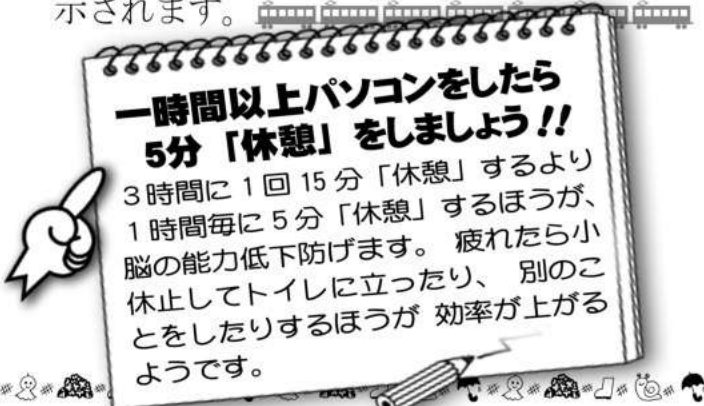 示されます。
一時間以上パソコンをしたら
5分「休憩」をしましょう!!
3時間に1回15分「休憩」するより
1時間毎に5分「休憩」するほうが、
脳の能力低下防げます。 疲れたら小
休止してトイレに立ったり、 別のこ
とをしたりするほうが 効率が上がる
ようです。